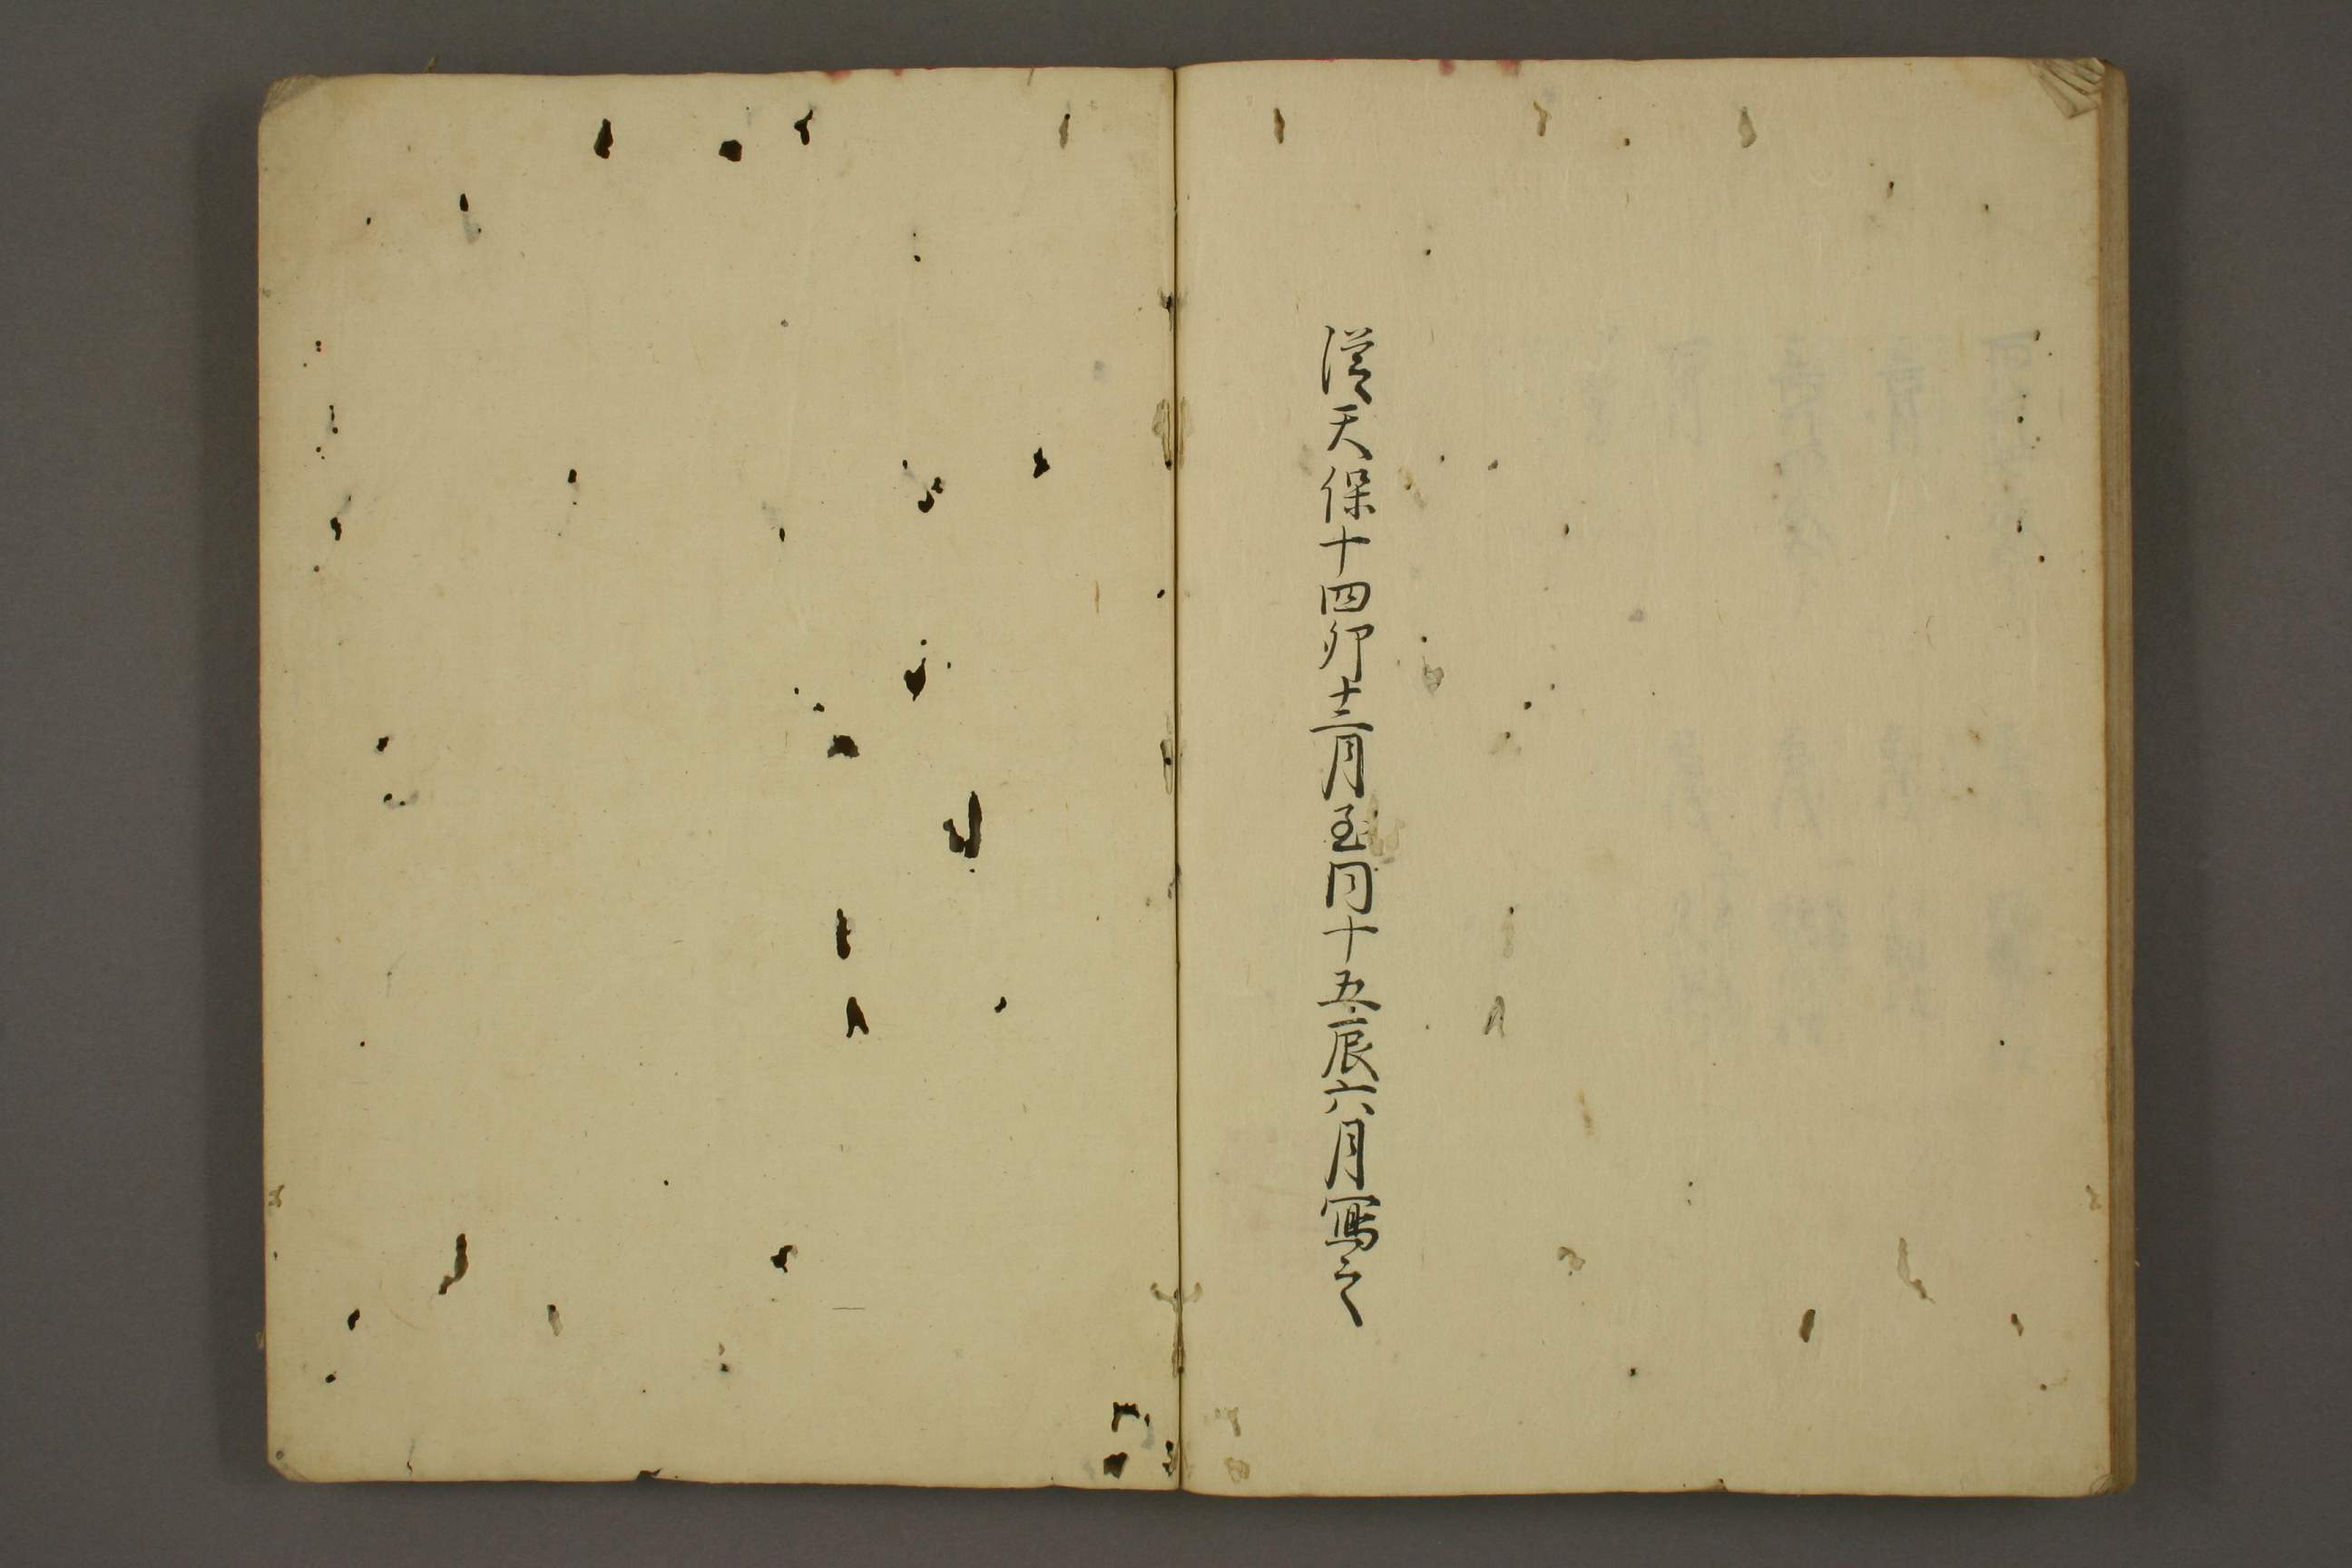 従天保十四卯十二月至同十五辰六月寫之